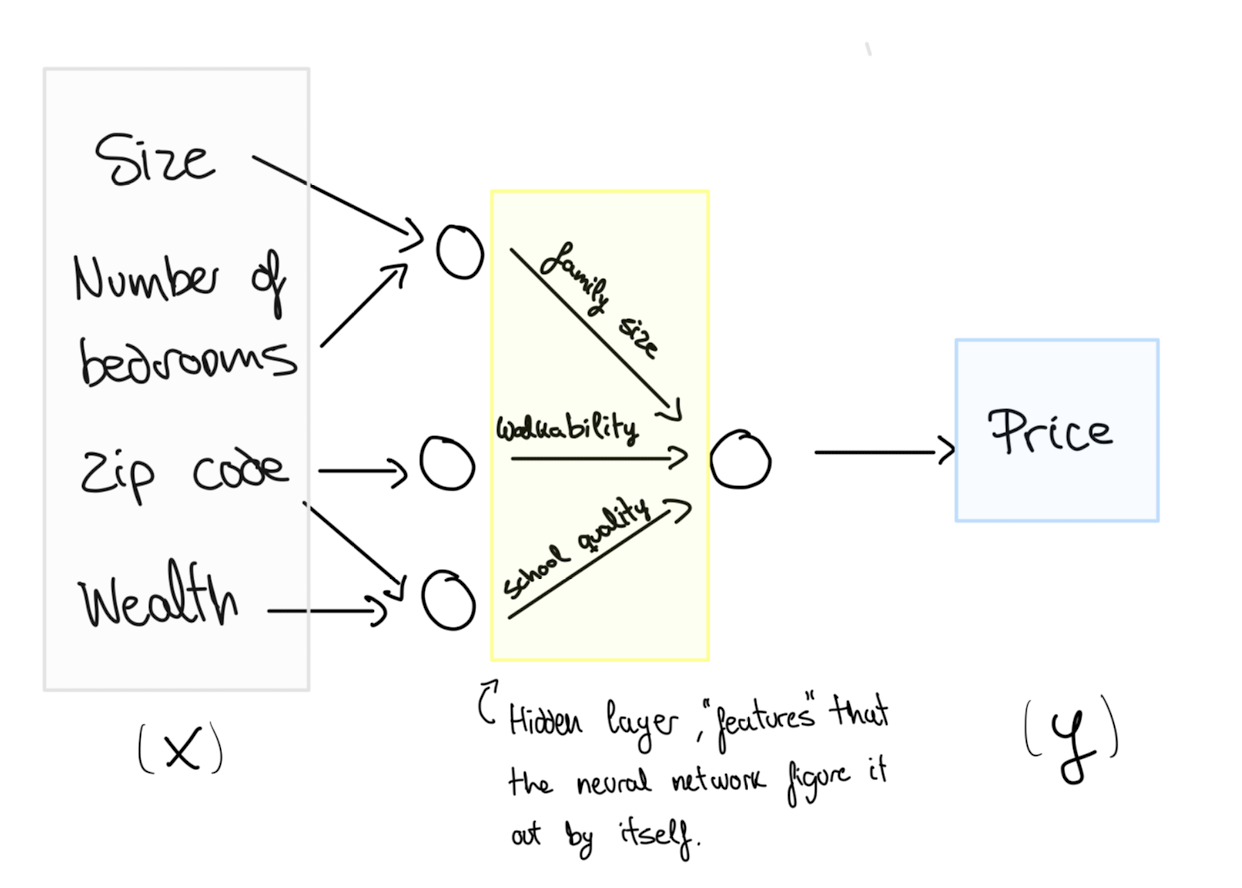 Size
Number of
bedrooms
Zip code
Wealth
(X)
family size
Walkability
school quality
Hidden layer, "features" that
the neural network figure it
out by itself.
Price
(y)